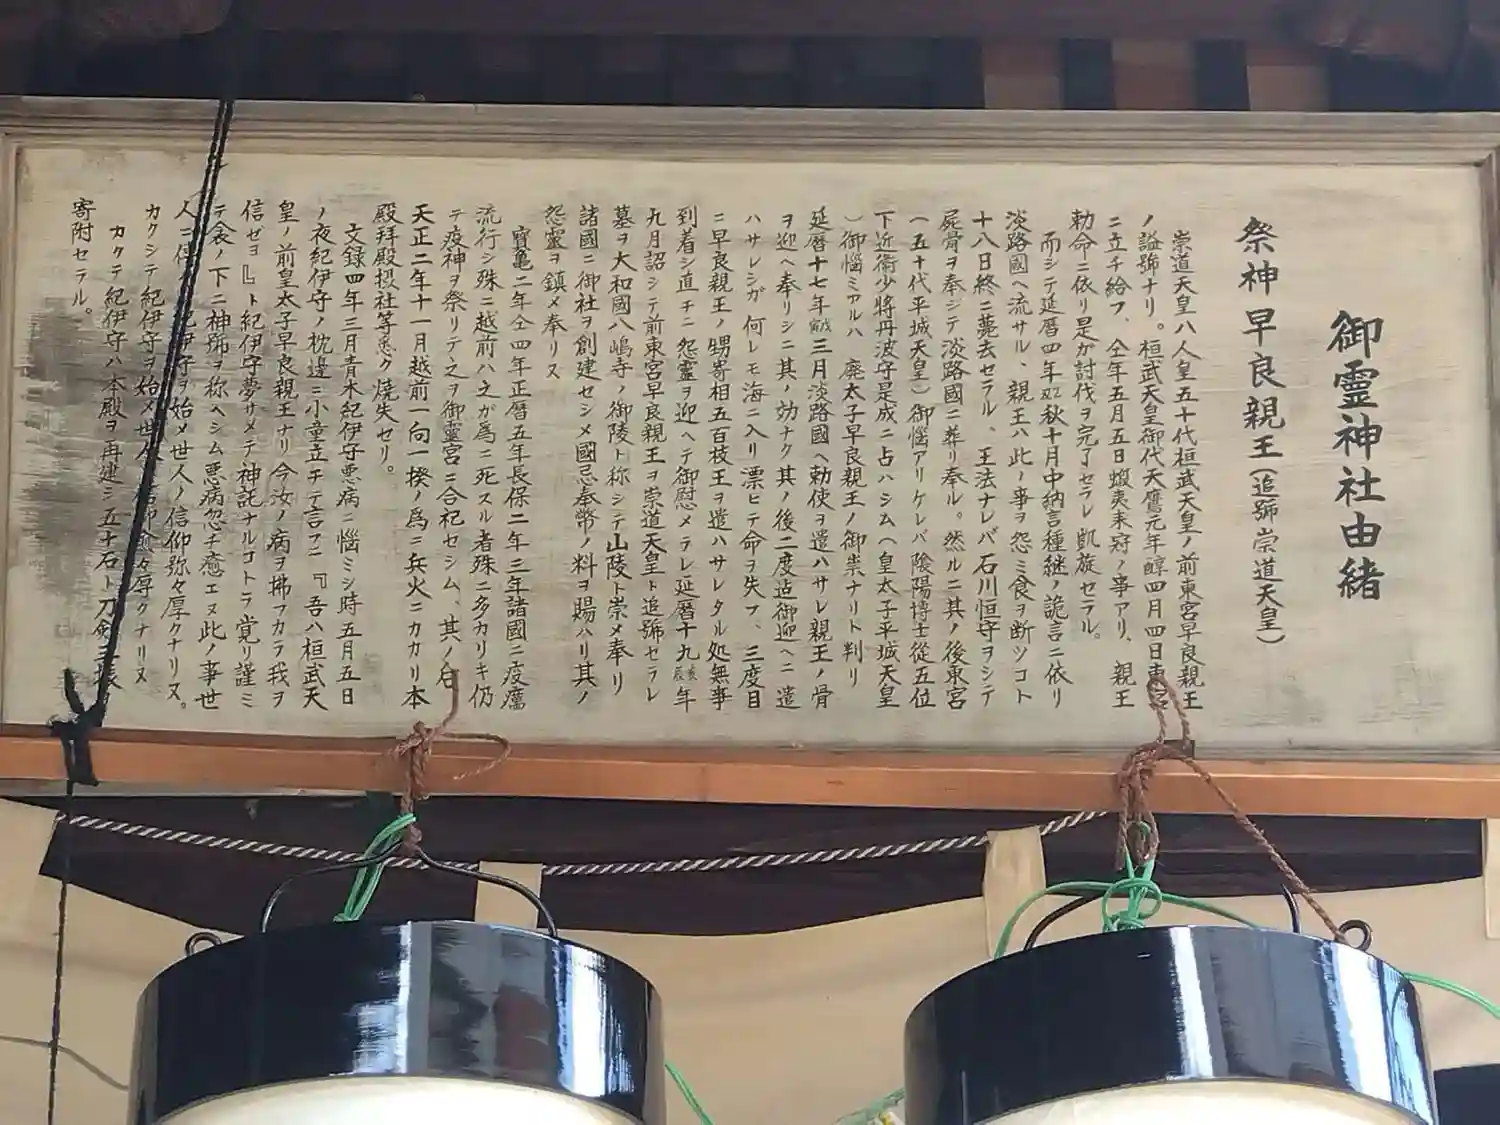 御靈神社由緒
祭神早良親王(追號崇道天皇)
崇道天皇八人皇五十代桓武天皇ノ前東宮早良親王
ノ謚號ナリ。桓武天皇御代天應元年 四月四日東宮
ニ立チ給フ、仝年五月五日蝦夷来寇ノ事アリ、親王
勅命ニ依リ是が討伐ヲ完了セラレ凱旋セラル。
而シテ延暦四年 秋十月中納言種継ノ詭言ニ依リ
淡路國ヘ流サル、親王ハ此ノ事ヲ怨ミ食ヲ断ツコト
十八日終ニ薨去セラル、王法ナレバ石川恒守ヲシテ
屍骨ヲ奉ジテ淡路國ニ葬リ奉ル。然ルニ其ノ後東宮
(五十代平城天皇)御惱アリケレバ陰陽博士從五位
下近衛少將丹波守是成ニ占ハシム(皇太子平城天皇
)御惱ミアルハ 廃太子早良親王ノ御祟ナリト判リ
延暦十七年 三月淡路國ヘ勅使ヲ遣ハサレ親王ノ骨
ヲ迎ヘ奉リシニ其ノ効ナク其ノ後二度迄御迎ヘニ遣
ハサレシガ何レモ海ニ入リ漂ヒテ命ヲ失フ、三度目
ニ早良親王ノ甥寄相五百枝王ヲ遣ハサレタル処無事
到着シ直チニ怨靈ヲ迎ヘテ御慰メラレ延暦十九 年
九月詔シテ前東宮早良親王ヲ崇道天皇ト追號セラレ
墓ヲ大和國八嶋寺ノ御陵ト称シテ山陵ト崇メ奉リ
諸國ニ御社ヲ創建セシメ國忌奉幣ノ料ヲ賜ハリ其ノ
怨靈ヲ鎮メ奉リス
寳亀二年仝四年正暦五年長保二年三年諸國ニ疫癘
流行シ殊ニ越前ハ之が爲ニ死スル者殊ニ多カリキ仍
テ疫神ヲ祭リテ之ヲ御靈宮ニ合祀セシム、其ノ后
天正二年十一月越前一向一揆ノ爲ニ兵火ニカカリ本
殿拜殿投社等悉ク焼失セリ。
文録四年三月青木紀伊守悪病ニ惱ミシ時五月五日
ノ夜紀伊守ノ枕邊ニ小童立チテ言フニ『吾ハ桓武天
皇ノ前皇太子早良親王ナリ今汝ノ病ヲ拂フカラ我ヲ
信ゼヨ』ト紀伊守夢サメテ神託ナルコトヲ覚リ謹ミ
テ衾ノ下ニ神號ヲ称ヘシム悪病忽チ癒エヌ此ノ事世
人ニ傳 紀伊守ヲ始メ世人ノ信仰弥々厚クナリヌ。
カクシテ紀伊守ヲ始メ世人 信仰 々厚クナリヌ
カクテ紀伊守ハ本殿ヲ再建シ五十石ト刀剣三振
寄附セラル。